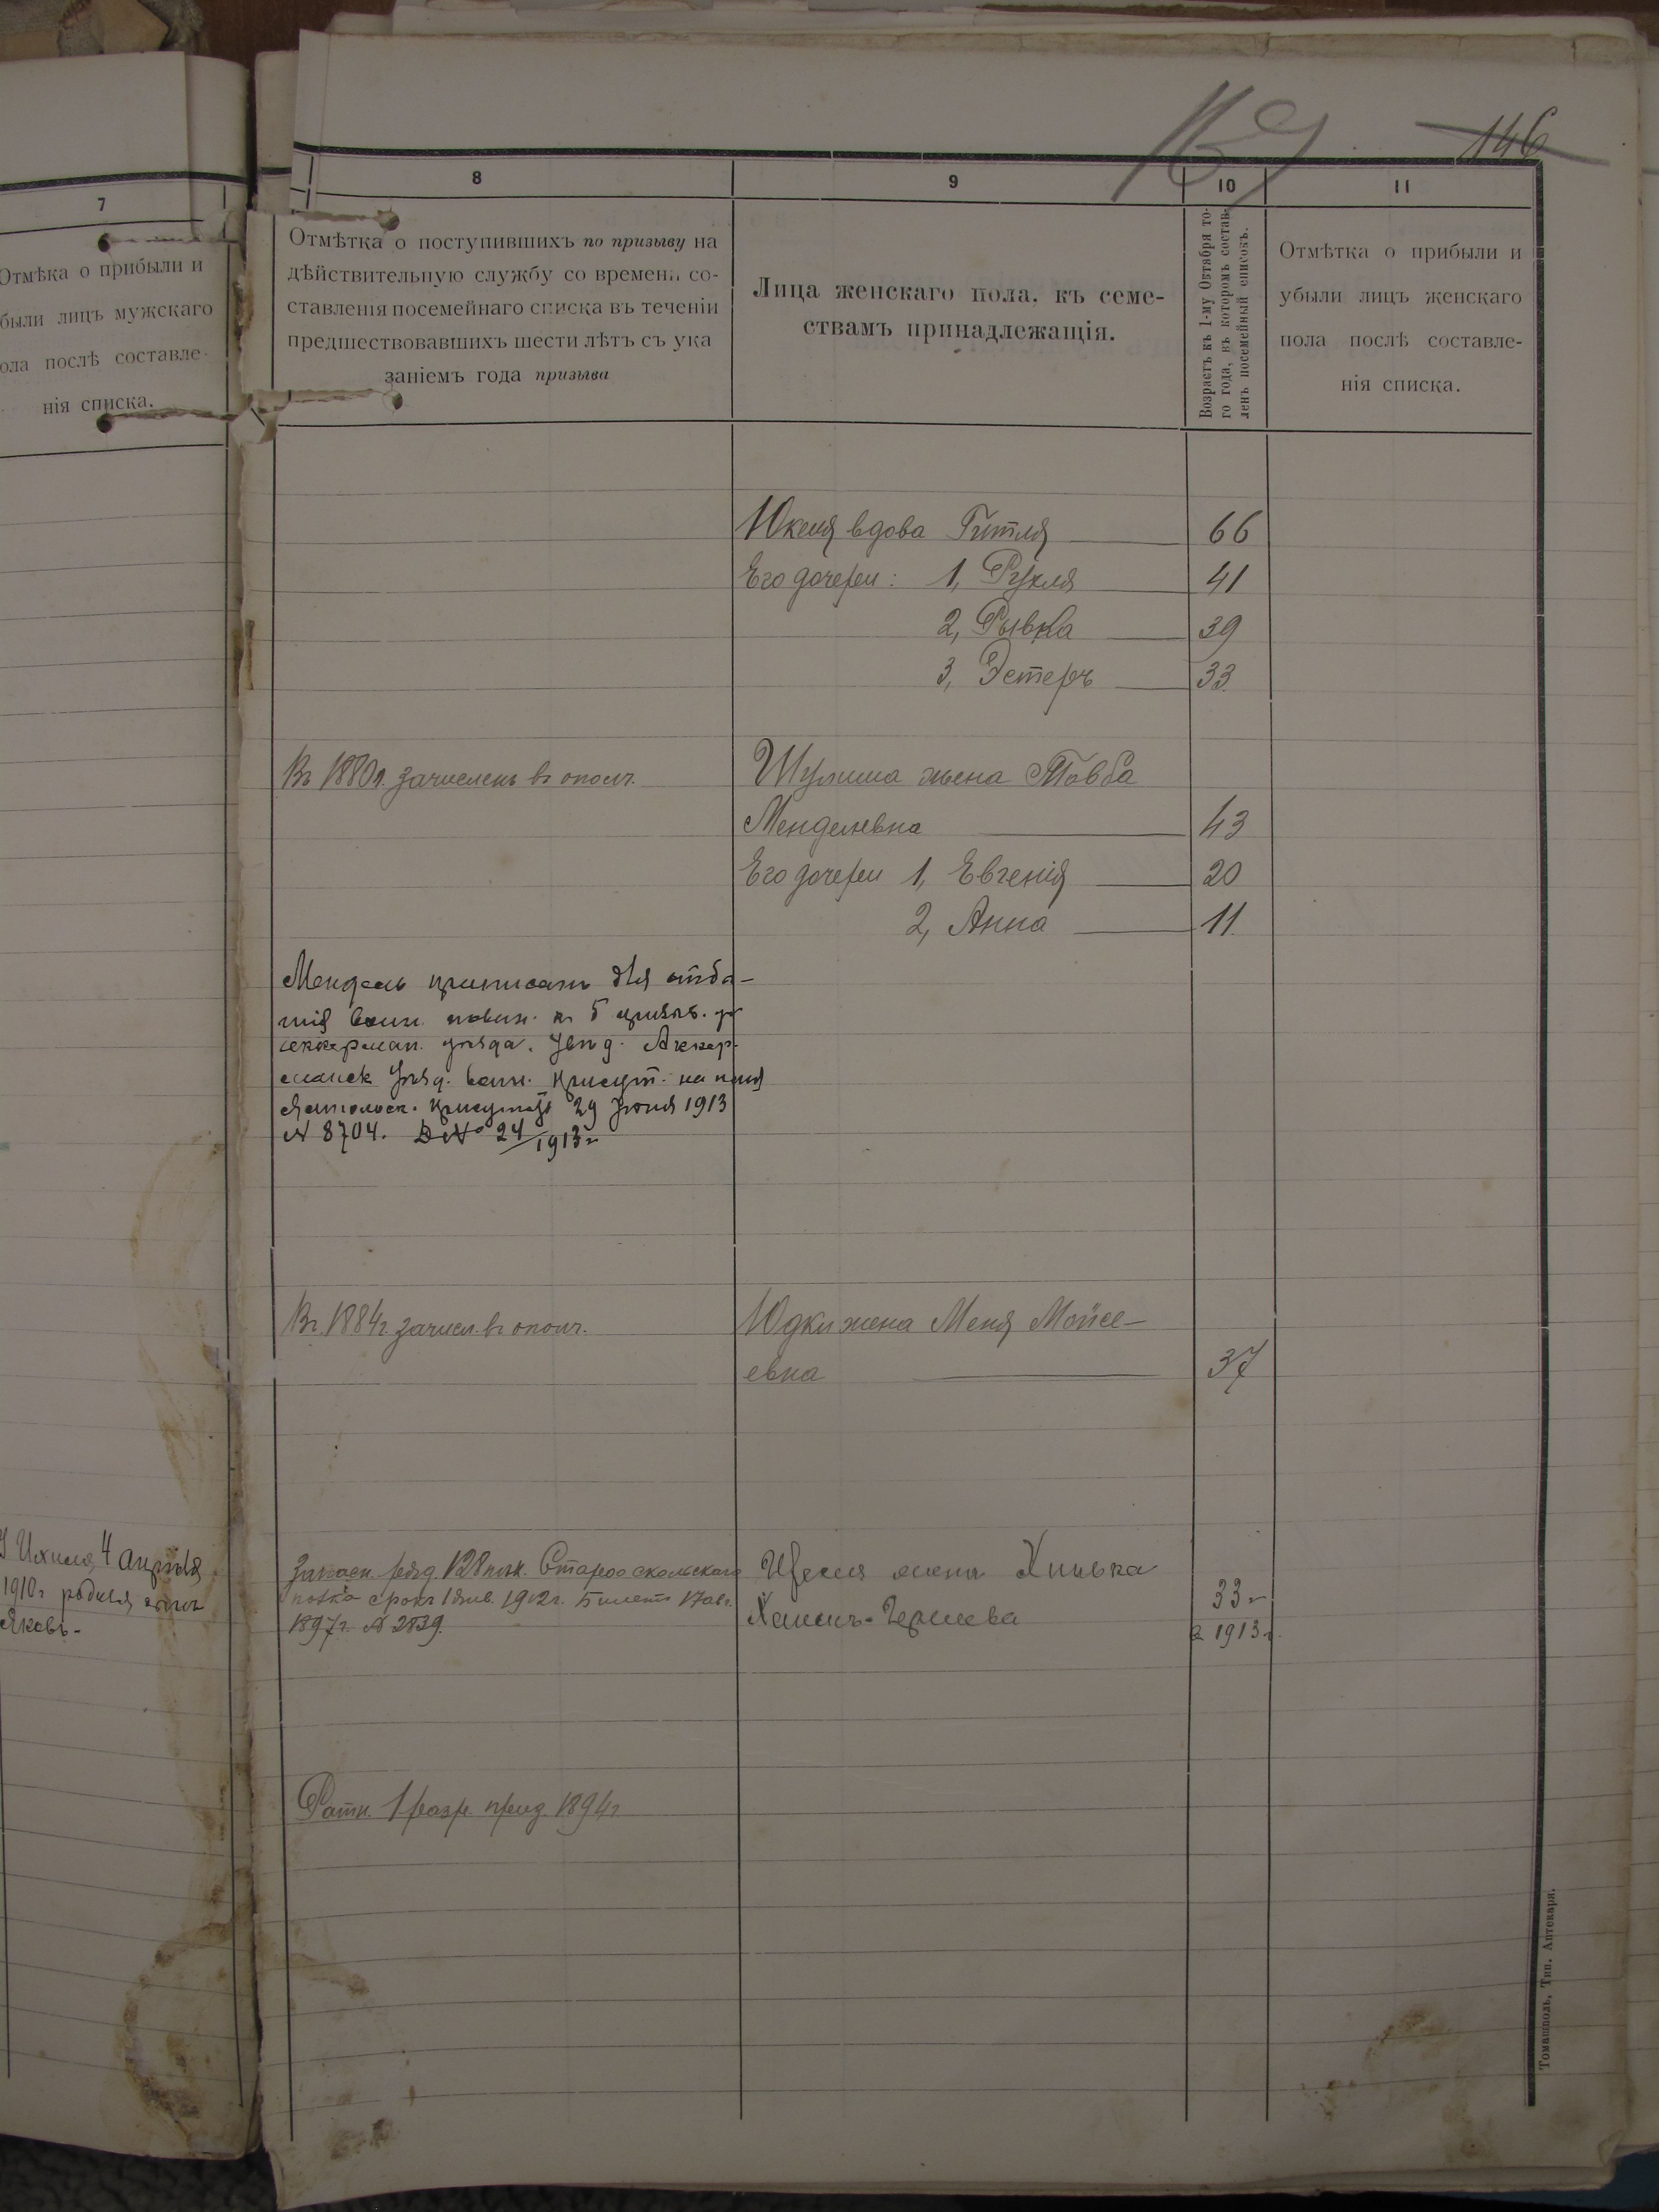 146
7
Отмѣка о прибыли и
были лицъ мужскаго
ола послѣ составле-
нія списка.
8
9
10
11
Отмѣтка о поступившихъ по призыву на
дѣйствительную службу со времени со-
ставленія посемейнаго списка въ теченіи
предшествовавшихъ шести лѣтъ съ ука
заніемъ года призыва
Лица женскаго пола, къ семе-
ствамъ принадлежащія.
Возрастъ къ 1-му Октября то-
го года, въ которомъ состав-
ленъ посемейный списокъ.
Отмѣтка о прибыли и
убыли лицъ женскаго
пола послѣ составле-
нія списка.
вдова Гитля 66
Его дочери: 1, Рухля 41
2, Рывка 39
3, Эстеръ 33
Въ 1880г. зачисленъ въ ополч.
Шулима жена Товба
Менделевна 43
Его дочери 1, Евгенія 20
2, Анна 11
Мендель приписанъ для отбы-
тія воин. повин. къ 5 призыв. уч
Аккерман. уѣзда. Увѣд. Аккер-
манск Уѣзд. воин. присут. на имя
Ямпольск. присутств 29 Іюня 1913
№ 8704. Д № 24/1913г
Въ 1884г. зачисл. въ ополч.
Юдки жена Меня Мойсе-
евна 37
У Ихиля 4 апрѣля
1910г родился сынъ
Яковъ.
Запасн. ряд. 128 пѣх. Старооскольскаго
полка срокъ 1 янв. 1912г. Билетъ 17 авг.
1897г. № 2839.
жена Хинька
33г
в 1913г.
Ратн. 1 разр. приз. 1894г
Томашполь, Тип. Аптекаря.